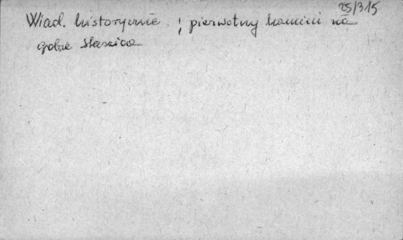 25/315
Wiad. historycznie ; pierwotny kamień na
grobie Staszica